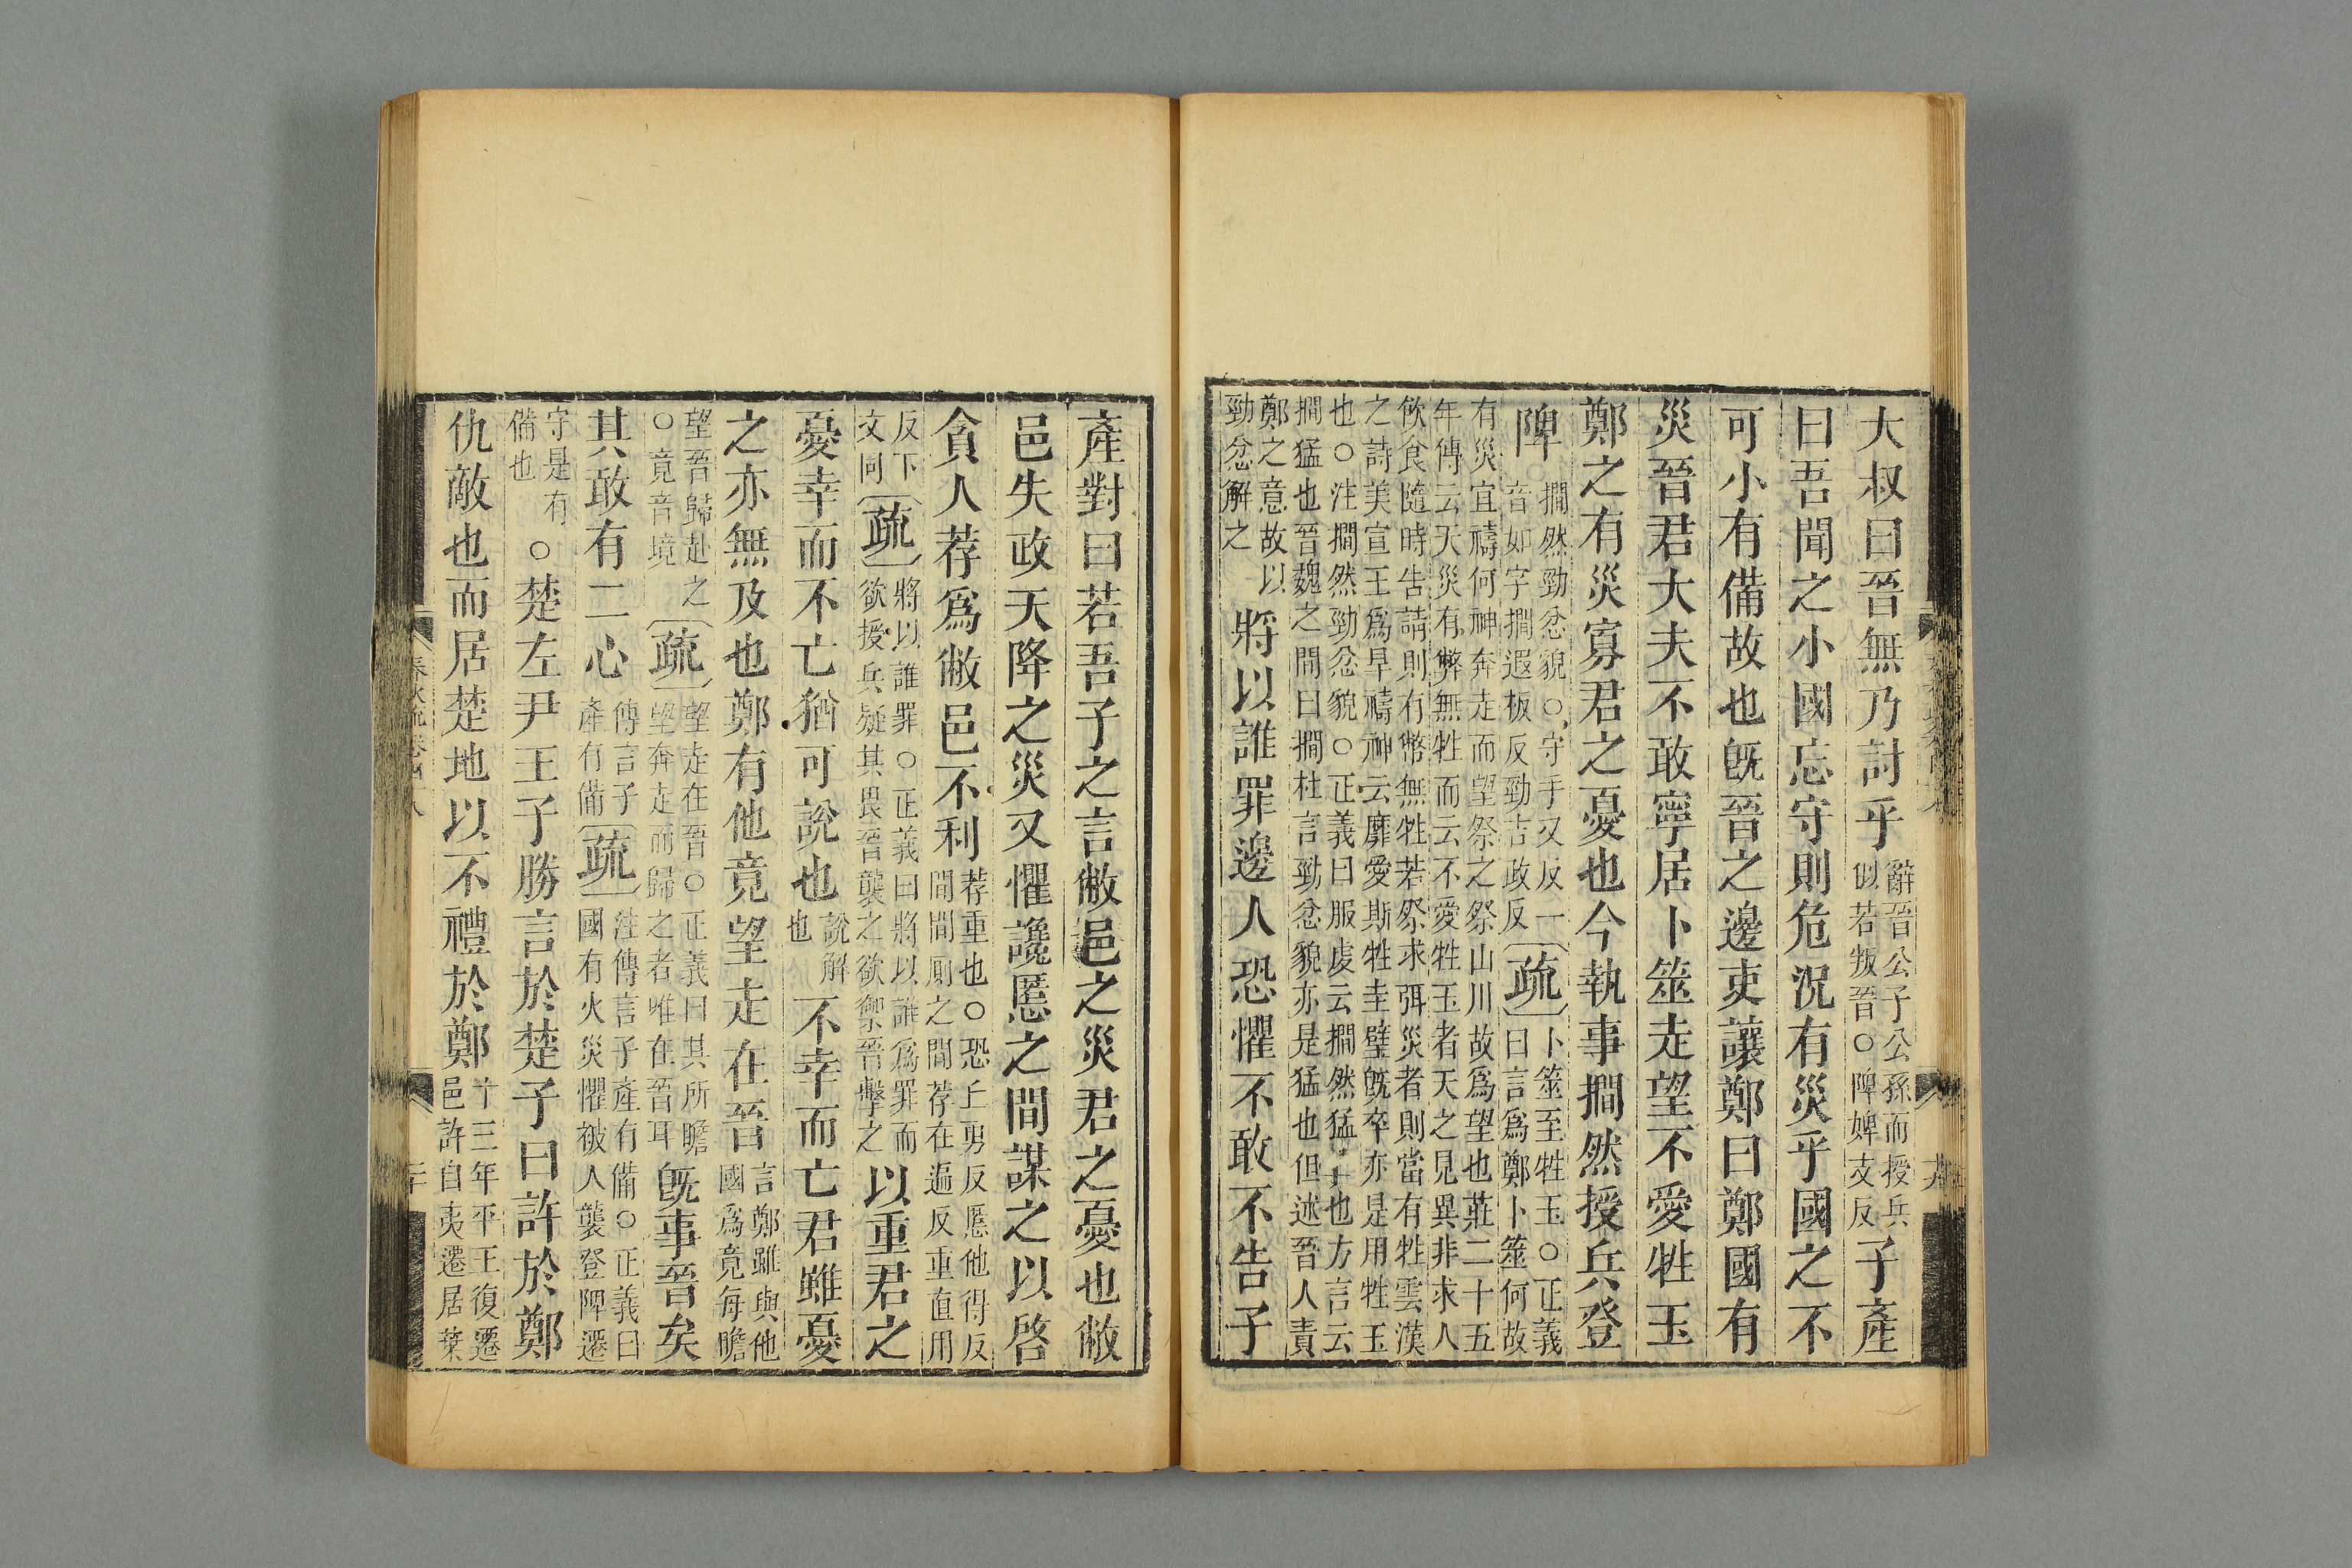 大叔曰晉無乃討乎
辭晉公子公孫而授兵
似若叛晉○陴婢支反
子產
曰吾聞之小國忘守則危況有災乎國之不
可小有備故也旣晉之邊吏讓鄭曰鄭國有
災晉君大夫不敢寧居卜筮走望不愛牲玉
鄭之有災寡君之憂也今執事撊然授兵登
陴
撊然勁忿貌○守手又反一
音如字撊遐板反勁吉政反
疏
卜筮至牲玉○正義
曰言爲鄭卜筮何故
有災宜禱何神奔走而望祭之祭山川故爲望也莊二十五
年傳云天災有弊無牲而云不愛牲玉者天之見異非求人
飲食隨時告請則有幣無牲若祭求弭災者則當有牲雲漢
之詩美宣王爲旱禱神云靡愛斯牲圭璧旣卒亦是用牲玉
也○注撊然勁忿貌○正義曰服虔云撊然猛也方言云
撊猛也晉魏之間曰撊杜言勁忿貌亦是猛也但述晉人責
鄭之意故以
勁忿解之
將以誰罪邊人恐懼不敢不告子
產對曰若吾子之言敝邑之災君之憂也敝
邑失政天降之災又懼讒慝之間謀之以啓
貪人荐爲敝邑不利
荐重也○恐丘勇反慝他得反
間間厠之間荐在遍反重直用
反下
文同
疏
將以誰罪○正義曰將以誰爲罪而
欲授兵疑其畏晉襲之欲禦晉擊之
以重君之
憂幸而不亡猶可說也
說解
也
不幸而亡君雖憂
之亦無及也鄭有他竟望走在晉
言鄭雖與他
國爲竟每瞻
望晉歸赴之
○竟音境
疏
望走在晉○正義曰其所瞻
望奔走而歸之者唯在晉耳
旣事晉矣
其敢有二心
傳言子
產有備
疏
注傳言子產有備○正義曰
國有火災懼被人襲登陴遷
守是有
備也
○楚左尹王子勝言於楚子曰許於鄭
仇敵也而居楚地以不禮於鄭
十三年平王復遷
邑許自夷遷居葉